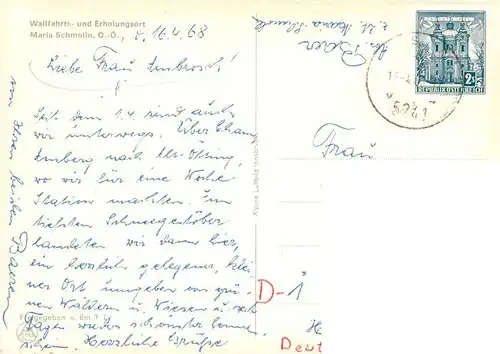 Wallfahrts- und Erholungsort
Maria Schmolln, O.-Ö., d. 16.4.68
Liebe Frau Ambrosch!
Seit dem 1.4. sind auch
wir unterwegs. Über
nach Alt-Ötting,
wo wir für eine Woche
Station machten. Im
tiefsten Schneegestöber
landeten wir dann hier,
ein herrlich gelegener, klei-
ner Ort umgeben von grü-
nen Wäldern u. Wiesen u. seit
Tagen schönster Sonnen-
schein. Herzliche Grüsse
von Ihren beiden
Freigegeben v. Bm. f.
Alpine Luftbild Innsbruck
z. Zt. Maria Schmolln
REPUBLIK ÖSTERREICH
2
5241
Frau
D-1
H
Deut